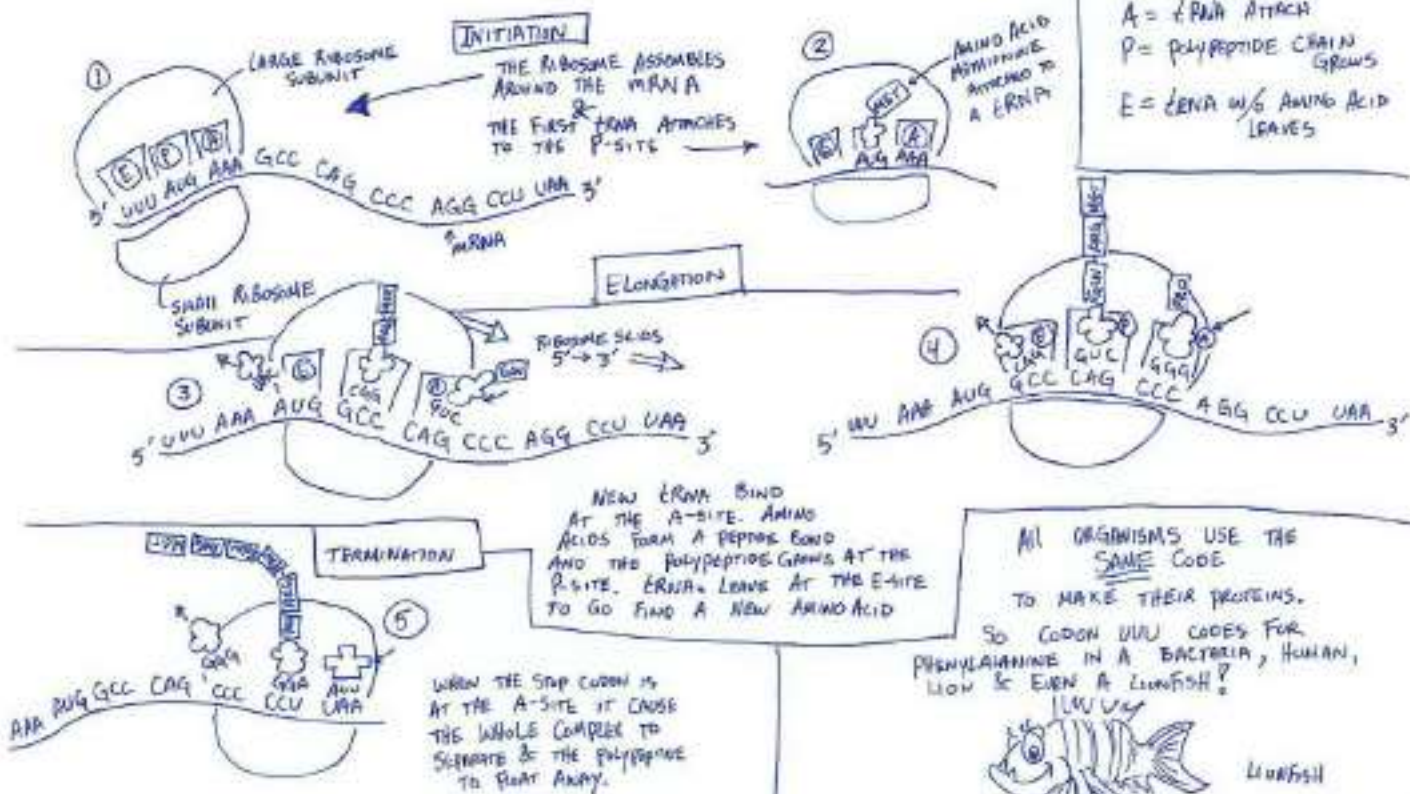 INITIATION
1
LARGE RIBOSOME
SUBUNIT
THE RIBOSOME ASSEMBLES
AROUND THE mRNA
&
THE FIRST tRNA ATTACHES
TO THE P-SITE
E P A
5' UUU AUG AAA GCC CAG CCC AGG CCU UAA 3'
mRNA
SMALL RIBOSOME
SUBUNIT
2
AMINO ACID
METHIONINE
ATTACHED TO
A tRNA
MET
E A
AUG AAA
A = tRNA ATTACH
P = POLYPEPTIDE CHAIN
GROWS
E = tRNA W/O AMINO ACID
LEAVES
ELONGATION
RIBOSOME SLIDS
5' → 3'
3
E
CGG
GUC
5' UUU AAA AUG GCC CAG CCC AGG CCU UAA 3'
4
MET
ARG
GLN
PRO
E
GUC
GGG
5' UUU AAA AUG GCC CAG CCC AGG CCU UAA 3'
NEW tRNA BIND
AT THE A-SITE. AMINO
ACIDS FORM A PEPTIDE BOND
AND THE POLYPEPTIDE GROWS AT THE
P-SITE. tRNAs LEAVE AT THE E-SITE
TO GO FIND A NEW AMINO ACID
TERMINATION
5
GGG
GGA
AUU
AAA AUG GCC CAG CCC CCU UAA
WHEN THE STOP CODON IS
AT THE A-SITE IT CAUSE
THE WHOLE COMPLEX TO
SEPARATE & THE POLYPEPTIDE
TO FLOAT AWAY.
All ORGANISMS USE THE
SAME CODE
TO MAKE THEIR PROTEINS.
SO CODON UUU CODES FOR
PHENYLALANINE IN A BACTERIA, HUMAN,
LION & EVEN A LIONFISH!
LIONFISH